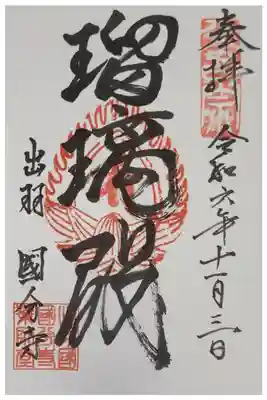 奉拝
令和六年十一月三日
瑠璃殿
出羽 國分寺